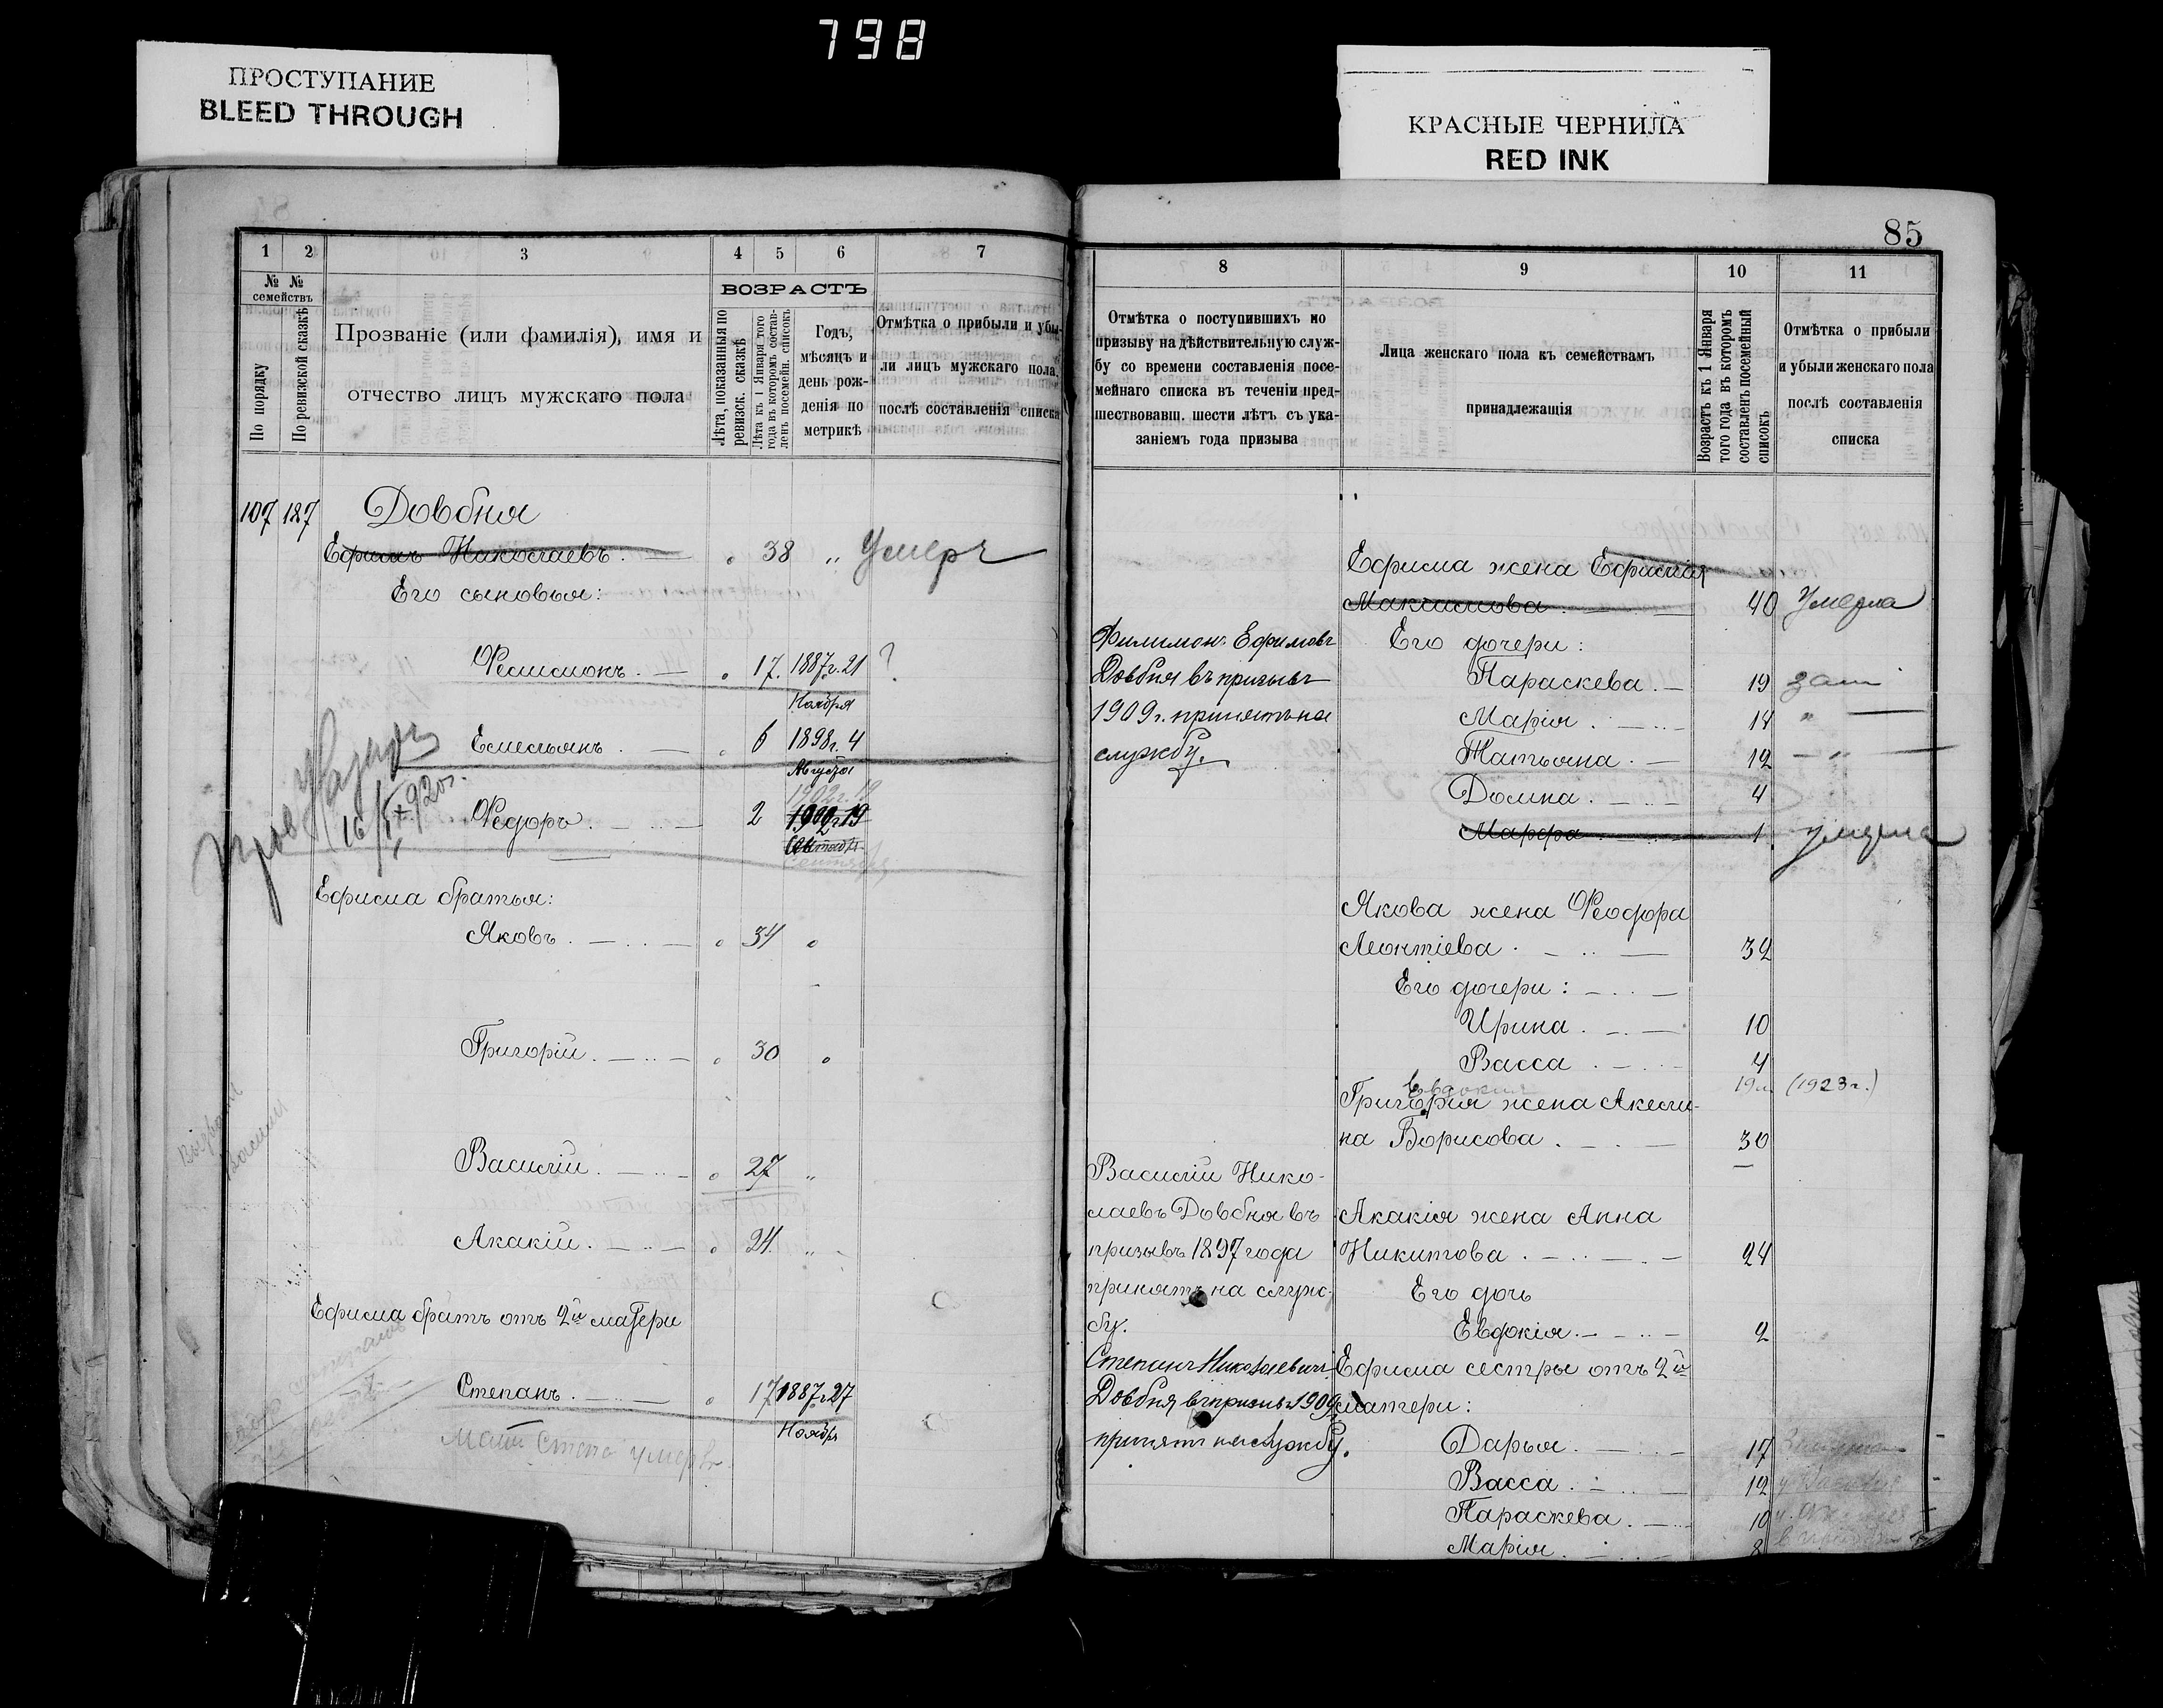 798
ПРОСТУПАНИЕ
BLEED THROUGH
КРАСНЫЕ ЧЕРНИЛА
RED INK
85
1 2 3 4 5 6 7
№ № семействъ
По порядку
По ревизской сказкѣ
Прозваніе (или фамилія), имя и
отчество лицъ мужскаго пола
ВОЗРАСТЪ
Лѣта, показанныя по
ревизск. сказкѣ
Лѣта къ 1 Января того
года въ которомъ состав-
ленъ посемейн. списокъ
Годъ,
мѣсяцъ и
день рож-
денія по
метрикѣ
Отмѣтка о прибыли и убы-
ли лицъ мужскаго пола
послѣ составленія списка
107 187 Довбня
Ефимъ Николаевъ. 38 „ Умеръ
Его сыновья:
Филимонъ. 17. 1887г. 21 ?
Ноября
Емельянъ. 6 1898г. 4
Августа
1902г. 19
Ѳедоръ. 2 19
16/IX 920г.
Ефима братья:
Яковъ. 34
Григорій. 30
Василій. 27 „
Акакій. 24. „
Ефима братъ отъ 2й матери
Степанъ. 17 1887г 27
Ноябр
8 9 10 11
Отмѣтка о поступившихъ по
призыву на дѣйствительную служ-
бу со времени составленія посе-
мейнаго списка въ теченіи пред-
шествовавш. шести лѣтъ съ ука-
заніемъ года призыва
Лица женскаго пола къ семействамъ
принадлежащія
Возрастъ къ 1 Января
того года въ которомъ
составленъ посемейный
списокъ
Отмѣтка о прибыли
и убыли женскаго пола
послѣ составленія
списка
Ефима жена Ефимія
Максимова. 40 Умерла
Филимонъ Ефимовъ Его дочери:
Довбня въ призывъ Параскева. 19 зам
1909г. принятъ на Марія. 14 „
службу. Татьяна. 12 „
Домна. 4
Марфа 1. умерла
Якова жена Ѳеодора
Леонтіева. 32
Его дочери:
Ирина. 10
Васса. 4
Евдокия 19 (1923г.)
Григорія жена Акели-
на Борисова. 30
Василій Нико-
лаевъ Довбня въ Акакія жена Анна
призывъ 1897 года Никитова. 24
принятъ на служ- Его дочь
бу. Евдокія. 2
Степанъ Николаевичъ Ефима сестры отъ 2й
Довбня въ призывъ 1909 матери:
принятъ на службу. Дарья. 17
Васса. 12
Параскева. 10
Марія. 8